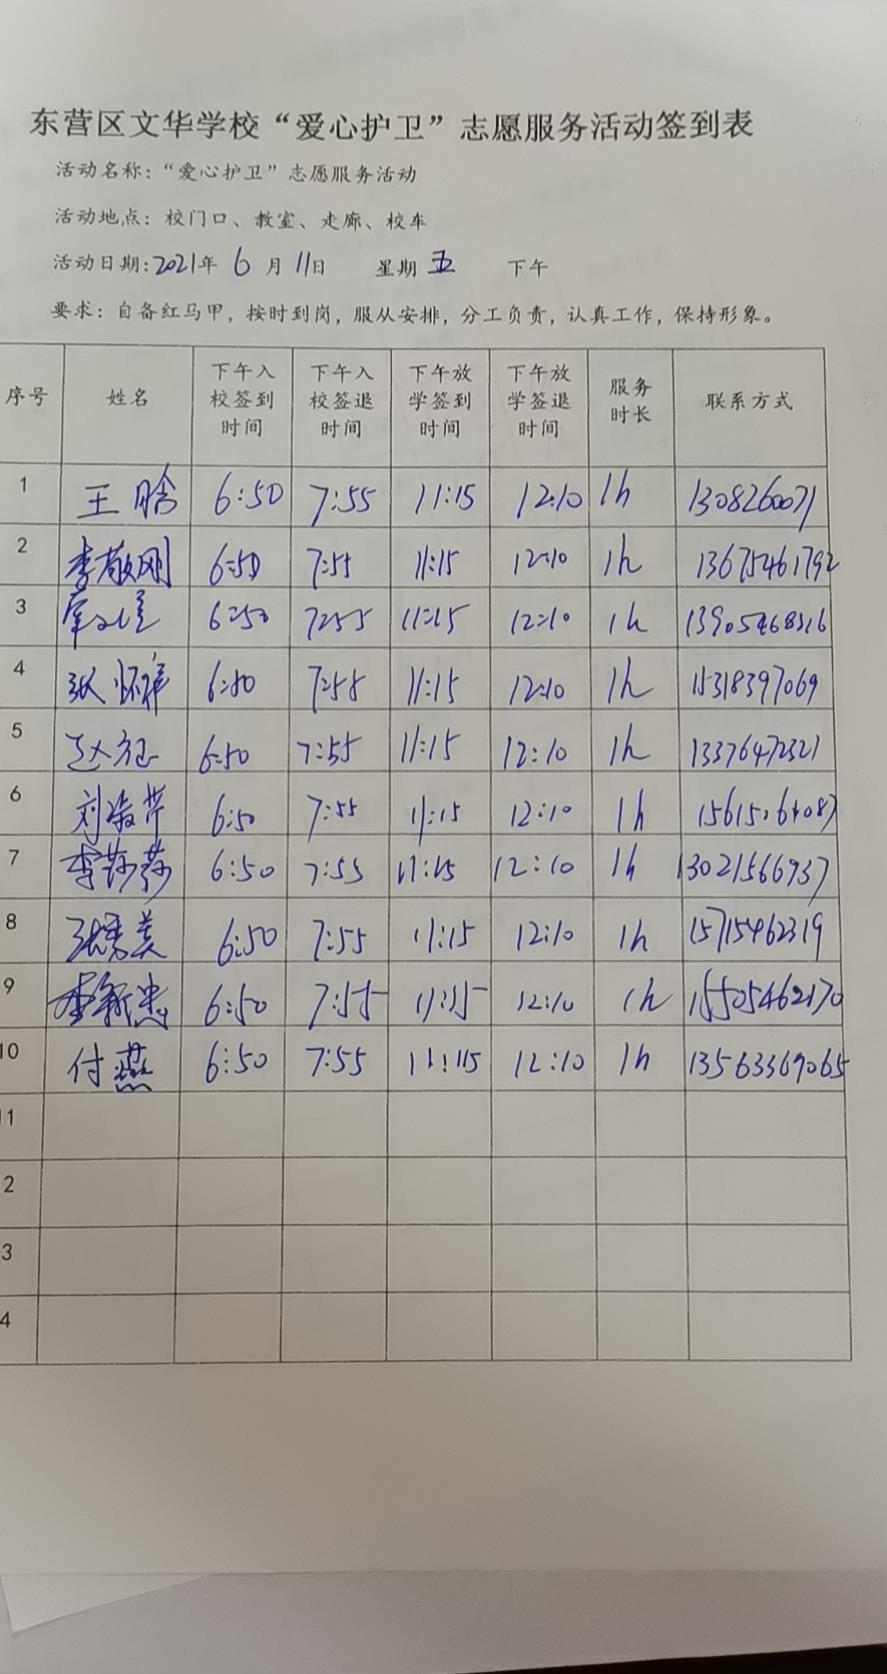 东营区文华学校“爱心护卫”志愿服务活动签到表
活动名称：“爱心护卫”志愿服务活动
活动地点：校门口、教室、走廊、校车
活动日期:2021年 6 月 11日 星期 五 下午
要求：自备红马甲，按时到岗，服从安排，分工负责，认真工作，保持形象。
序号 姓名 下午入校签到时间 下午入校签退时间 下午放学签到时间 下午放学签退时间 服务时长 联系方式
1 王晗 6:50 7:55 11:15 12:10 1h 1308260071
2 李敬刚 6:50 7:55 11:15 12:10 1h 13675461792
3 6:50 7:55 11:15 12:10 1h 13905468316
4 张怀祥 6:50 7:55 11:15 12:10 1h 15318397069
5 6:50 7:55 11:15 12:10 1h 13376472321
6 刘淑芹 6:50 7:55 11:15 12:10 1h
7 李莎莎 6:50 7:55 11:15 12:10 1h 13021566937
8 张秀美 6:50 7:55 11:15 12:10 1h 15715462319
9 李新忠 6:50 7:55 11:15 12:10 1h 15505462170
10 付燕 6:50 7:55 11:15 12:10 1h 13563369065
11
2
3
4